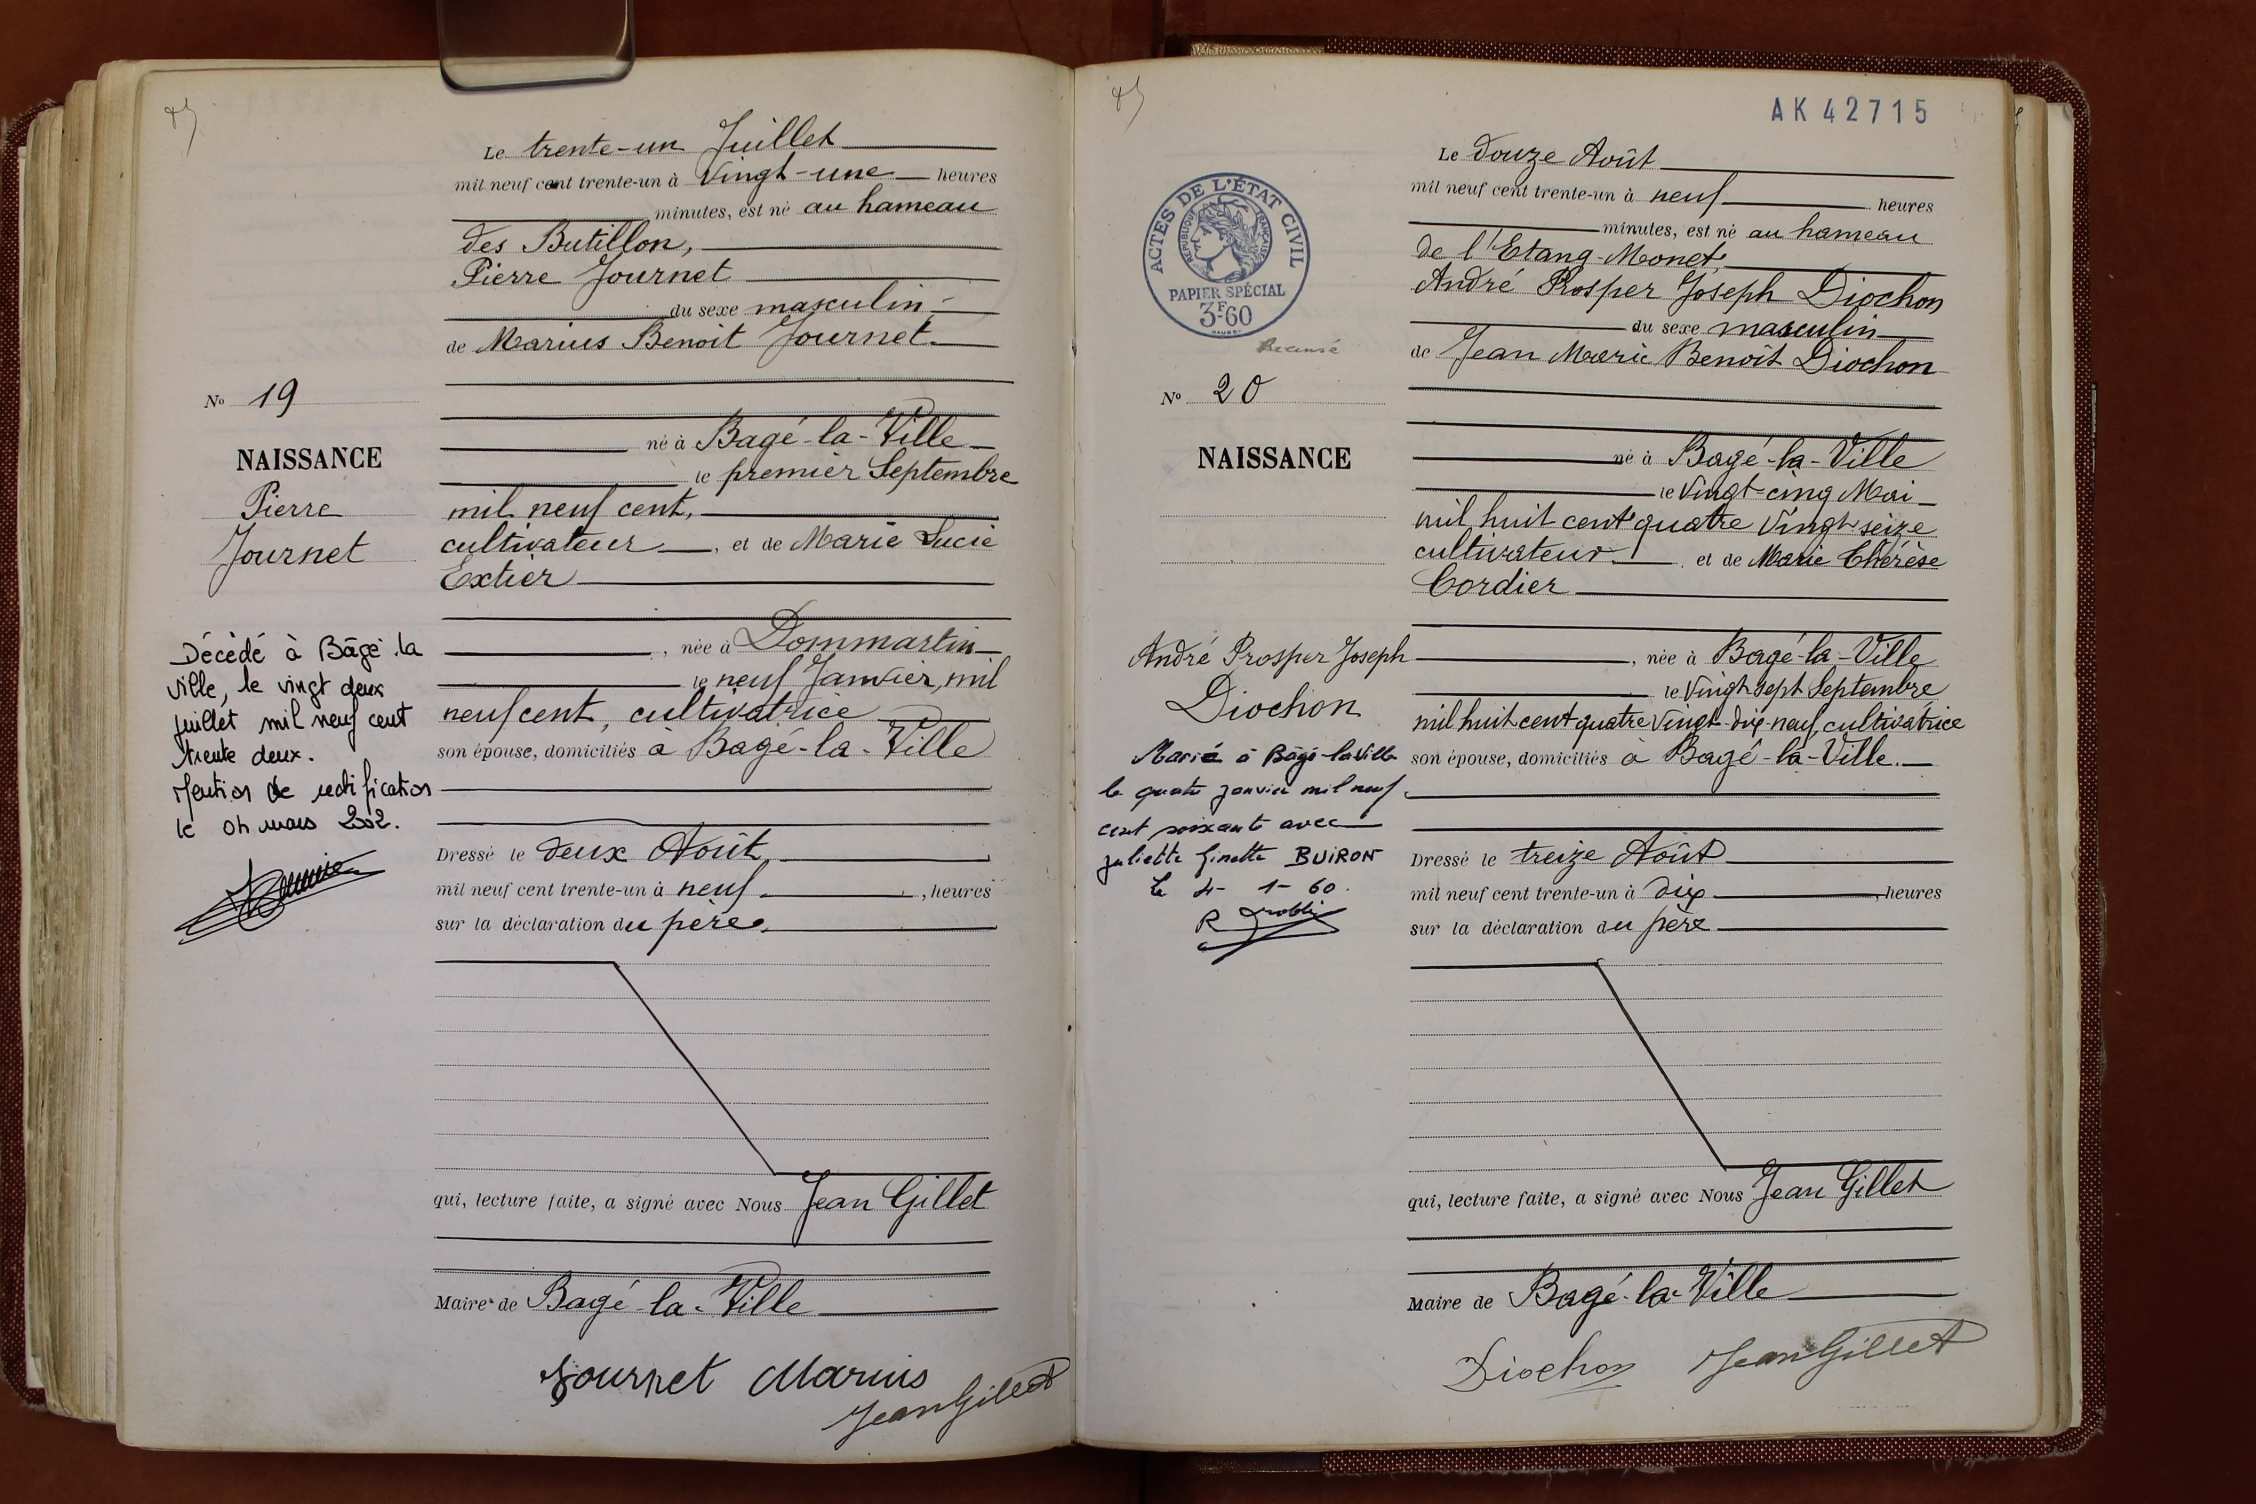 Le trente-un Juillet
mil neuf cent trente-un à Vingt-une heures
minutes, est né au hameau
des Butillon,
Pierre Journet
du sexe masculin
de Marius Benoit Journet
N° 19
né à Bagé-la-Ville
NAISSANCE
le premier Septembre
Pierre
mil neuf cent,
Journet
cultivateur, et de Marie Lucie
Extier
Décédé à Bâgé la
ville, le vingt deux
juillet mil neuf cent
trente deux.
Mention de rectification
le 04 mars 2002.
, née à Dommartin
le neuf Janvier, mil
neuf cent, cultivatrice
son épouse, domiciliés à Bagé-la-Ville
Dressé le deux Août,
mil neuf cent trente-un à neuf, heures
sur la déclaration du père.
qui, lecture faite, a signé avec Nous Jean Gillet
Maire de Bagé-la-Ville
Journet Marius
Jean Gillet
AK 42715
ACTES DE L'ÉTAT CIVIL
RÉPUBLIQUE FRANÇAISE
PAPIER SPÉCIAL
3F60
Recensé
Le douze Août
mil neuf cent trente-un à neuf heures
minutes, est né au hameau
de l'Etang-Monet,
André Prosper Joseph Diochon
du sexe masculin
de Jean Marie Benoît Diochon
N° 20
NAISSANCE
André Prosper Joseph
Diochon
Marié à Bâgé-la-Ville
le quatre janvier mil neuf
cent soixante avec
Juliette Ginette BUIRON
Le 4-1-60.
né à Bagé-la-Ville
le Vingt-cinq Mai
mil huit cent quatre Vingt seize
cultivateur, et de Marie Thérèse
Cordier
, née à Bagé-la-Ville
le Vingt sept Septembre
mil huit cent quatre Vingt-dix-neuf, cultivatrice
son épouse, domiciliés à Bagé-la-Ville.
Dressé le treize Août
mil neuf cent trente-un à dix, heures
sur la déclaration du père
qui, lecture faite, a signé avec Nous Jean Gillet
Maire de Bagé-la-Ville
Diochon
Jean Gillet